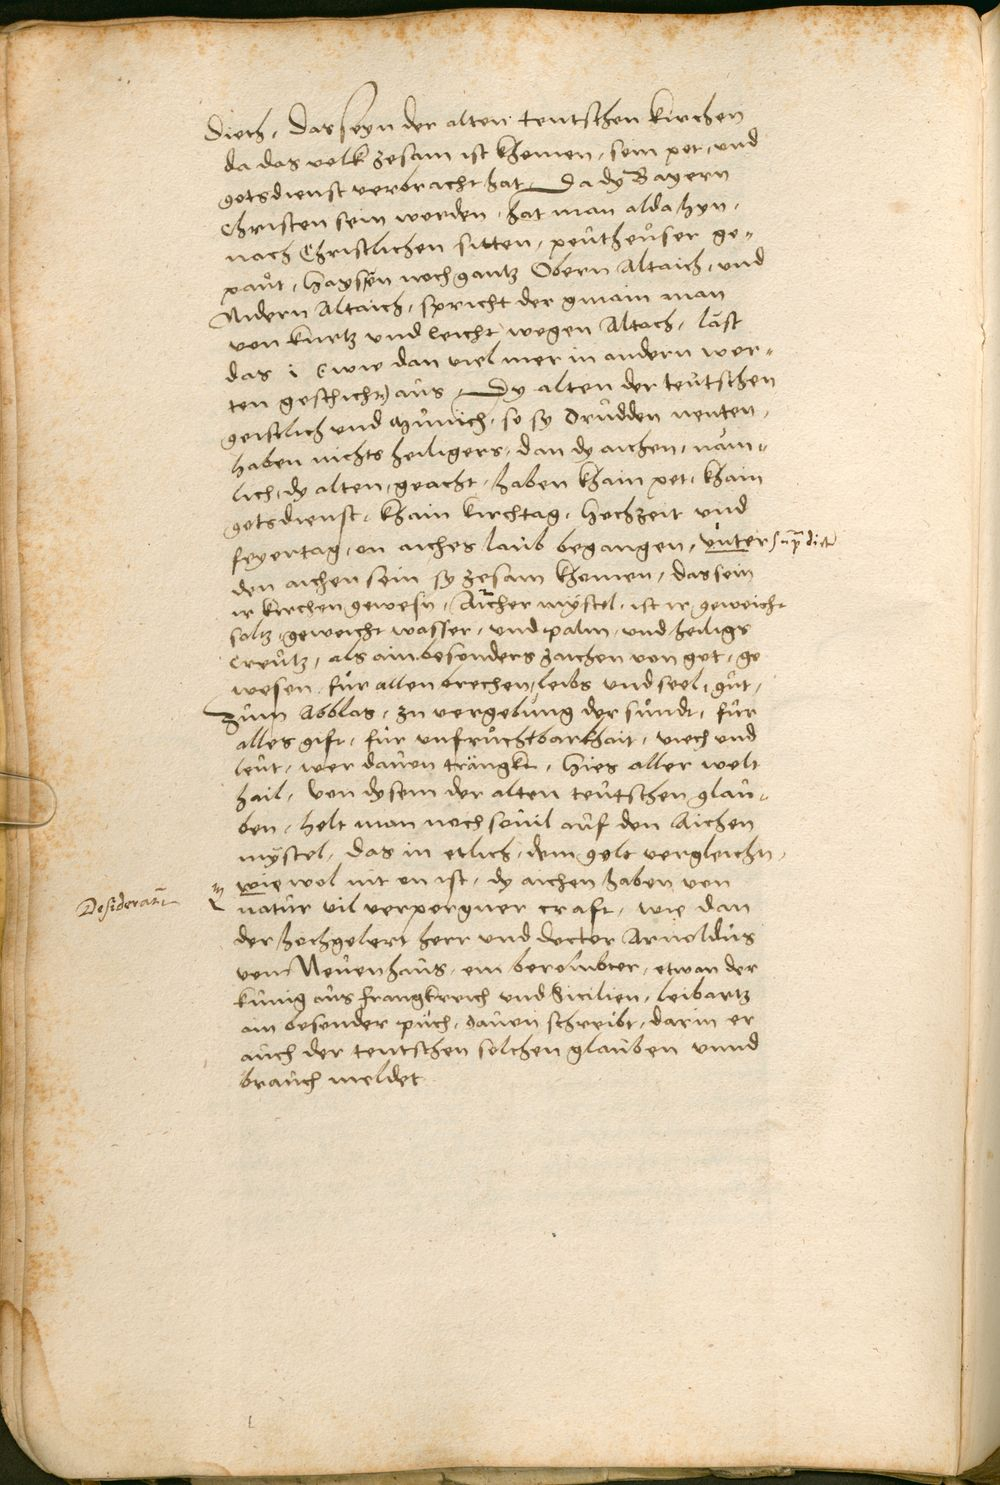 Diech, Das seyn der alten teutschen kirchen
da das volk zesam ist khomen, sein pet, und
gotsdienst verbracht hat, Da dy Bayern
Christen sein worden, hat man alda hyn,
nach Christlichen sitten, petheüser ge-
paut, Hayssen noch gantz Obern Altaich, und
Nidern Altaich, spricht der gmain man
von kurtz und leicht wegen Altach, läst
das i (wie dan viel mer in andern wor-
ten geschicht) aus, Dy alten der teutschen
geistlich und Münich, so sy Drudden nenten,
haben nichts heiligers, dan dy aichen, näm-
lich, dy alten, geacht, haben khain pet, khain
gotsdienst, khain kirchtag, Hochzeit und
feyertag, on aiches laub begangen, unter
den aichen sein sy zesam khomen, das sein
ir kirchen gewesn, Aicher mystel, ist ir geweicht
saltz, geweicht wasser, und palm, und heiligs
Creutz, als ain besonders zaichen von got, ge
wesen, für allen brechen, leibs und seel, gut,
Zum Abblas, zu vergebung der sündt, für
alles gift, für unfruchtbarkhait, viech und
leut, wer davon tränkt, Hies aller welt
hail, Von dysem der alten teutschen glau-
ben, helt man noch sovil auf den Aichen
mystel, das in etlich, dem golt vergleichn,
wie wol nit on ist, dy aichen haben von
Desideratur
natur vil verporgner craft, wie dan
der hochgelert herr und doctor Arnoldus
vom Neuenhaus, ein berombter, etwan der
künig aus Frangkreich und Sicilien, leibartz
ain besonder puch, davon schreibt, darin er
auch der teutschen solchen glauben unnd
brauch meldet